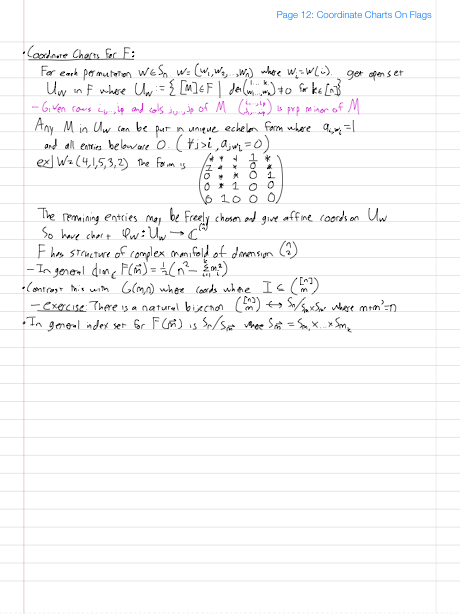 Page 12: Coordinate Charts On Flags
• Coordinate Charts for F:
For each permutation W∈Sn W=(w₁,w₂,...,wₙ) where wᵢ=w(i). get open set
U_W in F where U_W := { [M]∈F | det(1...k / w₁...w_k) ≠0 for k∈[n]}
- Given rows i₁,..,ip and cols j₁,..,jp of M (i₁...ip / j₁...jp) is pxp minor of M
Any M in U_W can be put in unique echelon form where a_{i,wᵢ}=1
and all entries below are 0. (∀j>i, a_{j,wᵢ}=0)
ex] W=(4,1,5,3,2) the form is
* * * 1 *
1 * * 0 *
0 * * 0 1
0 * 1 0 0
0 1 0 0 0
The remaining entries may be freely chosen and give affine coords on U_W
So have chart φ_W: U_W → ℂ^(n 2)
F has structure of complex manifold of dimension (n 2)
- In general dim_ℂ F(m⃗) = ½(n² - Σ_{i=1}^{k} mᵢ²)
• Contrast this with G(m,n) where coords where I∈([n] m)
- exercise: There is a natural bijection ([n] m) ↔ Sn/Sm×Sm' where m+m'=n
• In general index set for F(m⃗) is Sn/S_m⃗ where S_m⃗ = S_{m₁}×...×S_{m_k}